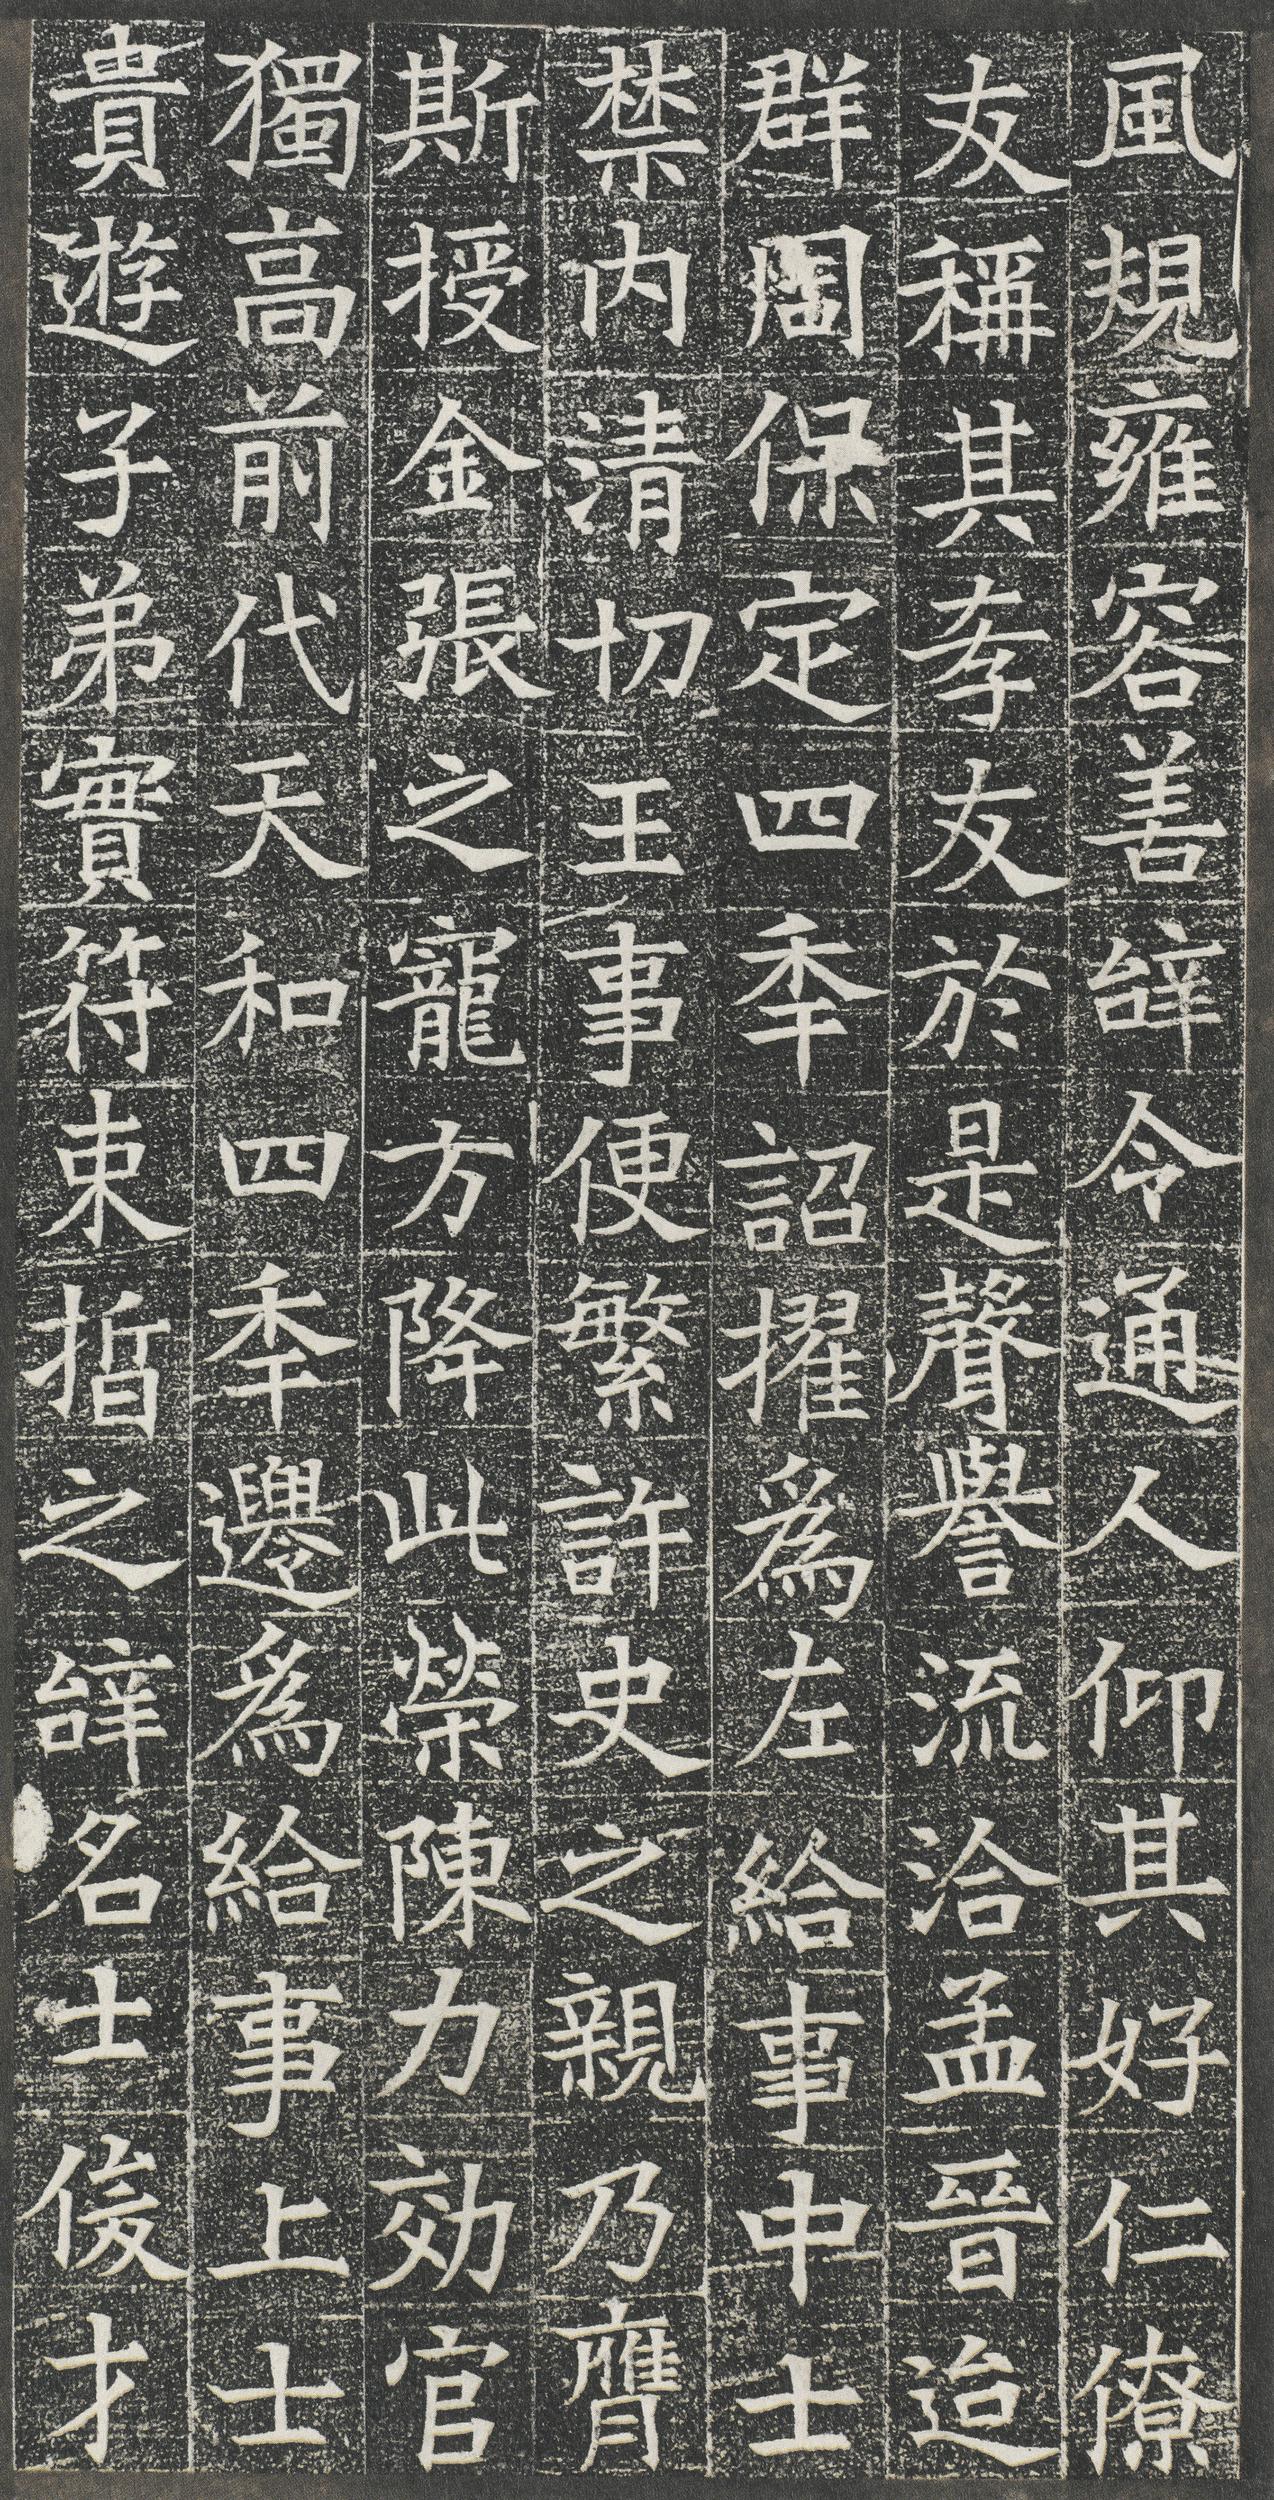 風規雍容善辝令通人仰其好仁僚
友稱其孝友於是聲譽流洽孟晉迨
群周保定四秊詔擢爲左給事中士
禁内清切王事便繁許史之親乃膺
斯授金張之寵方降此榮陳力効官
獨高前代天和四秊遷爲給事上士
貴遊子弟實符束晳之辝名士俊才